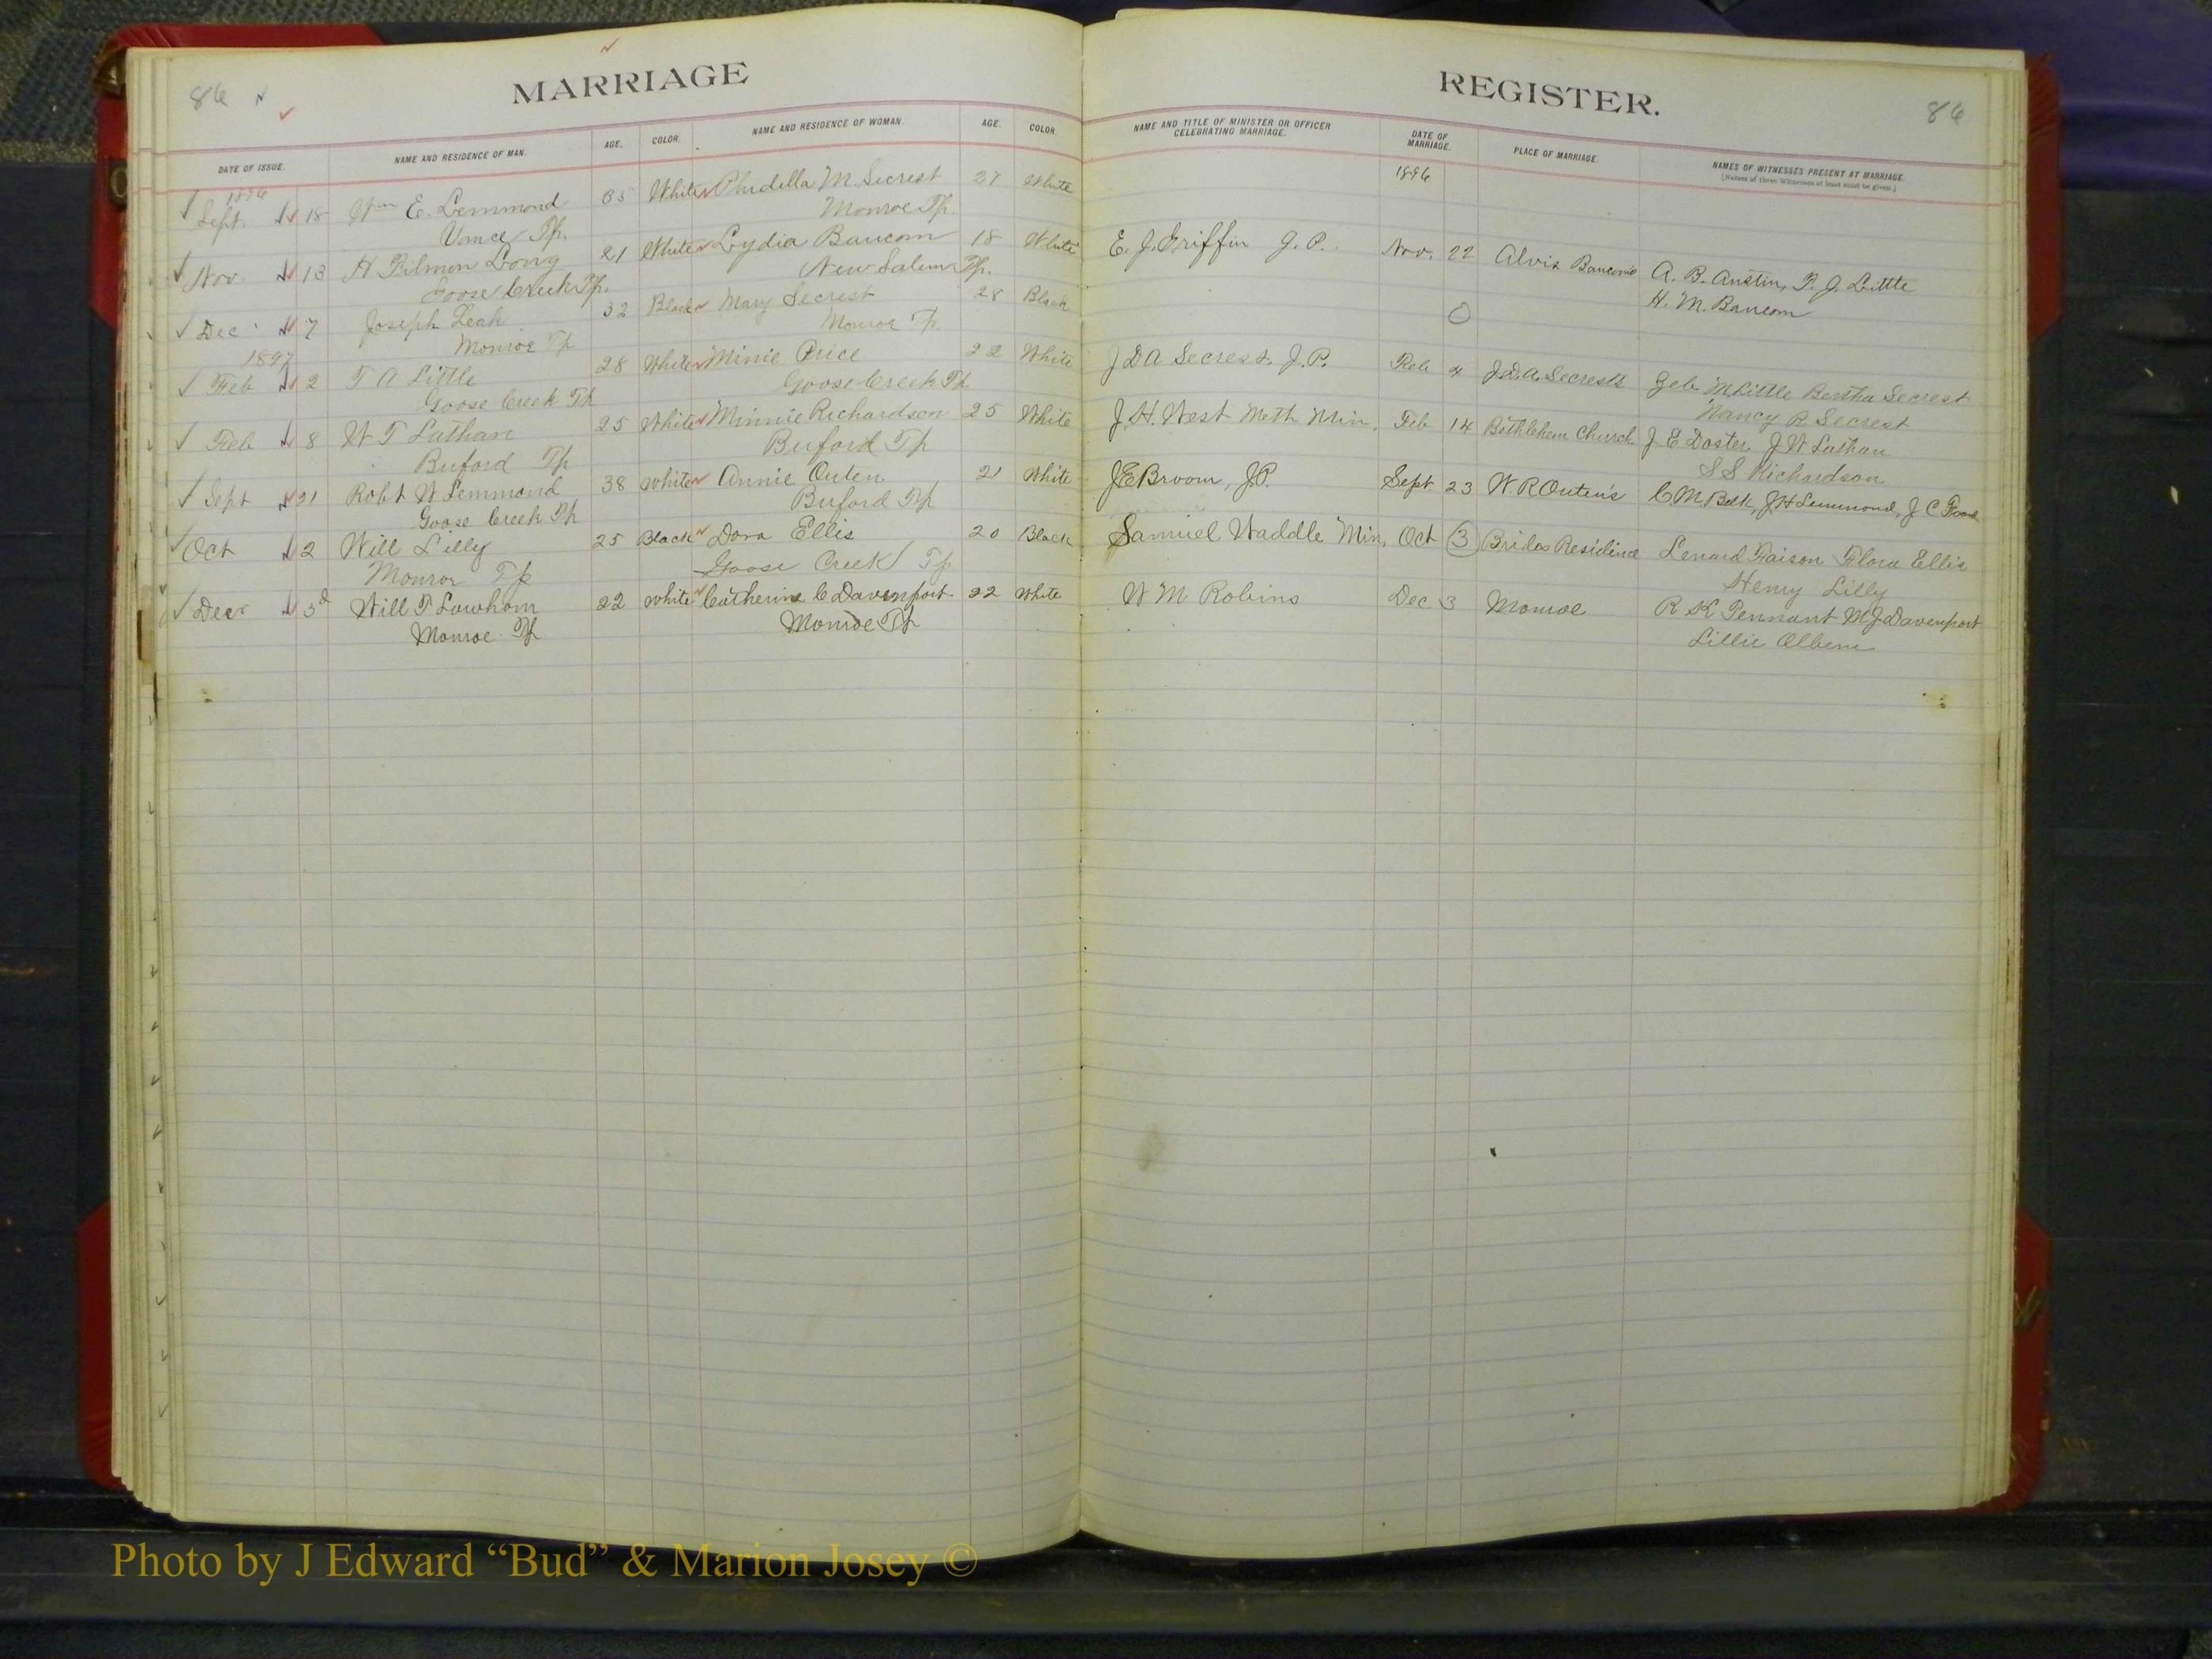 86
86
MARRIAGE REGISTER.
DATE OF ISSUE. NAME AND RESIDENCE OF MAN. AGE. COLOR. NAME AND RESIDENCE OF WOMAN. AGE. COLOR. NAME AND TITLE OF MINISTER OR OFFICER CELEBRATING MARRIAGE. DATE OF MARRIAGE. PLACE OF MARRIAGE. NAMES OF WITNESSES PRESENT AT MARRIAGE.
[Names of three Witnesses at least must be given.]
1896 1896
Sept. 18 Wm E. Lemmond 65 White M. Secrest 37 White
Vance Tp. Monroe Tp.
Nov. 13 H Long 21 White Lydia Baucom 18 White E. J. Griffin J. P. Nov. 22 Alvis Baucom's A. B. Austin, P. J. Little
Goose Creek Tp. New Salem Tp. H. M. Baucom
Dec 7 Joseph Leak 32 Black Mary Secrest 28 Black
Monroe Tp Monroe Tp.
1897
Feb 2 T A Little 28 White Minie Price 22 White J D A Secrest. J. P. Feb 4 J.D.A. Secrests Little Bertha Secrest
Goose Creek Tp Goose Creek Tp Nancy R Secrest
Feb 8 W T Lathan 25 White Minnie Richardson 25 White J. H. West Meth Min. Feb 14 Bethlehem Church J E Doster, J W Lathan
Buford Tp Buford Tp S S Richardson
Sept 21 Robt W Lemmond 38 White Annie Outen 21 White J E Broom, J.P. Sept. 23 W R Outen's C M Belk, J H Lemmond, J C
Goose Creek Tp Buford Tp
Oct 2 Will Lilly 25 Black Dora Ellis 20 Black Samuel Waddle Min, Oct 3 Brides Residence Lenard Faison Flora Ellis
Monroe Tp Goose Creek Tp Henry Lilly
Decr 3d Will T Lawhom 22 White Catherine C Davenport 22 White W M Robins Dec 3 Monroe R K Pennant M J Davenport
Monroe Tp Monroe Tp Lillie
Photo by J Edward “Bud” & Marion Josey ©